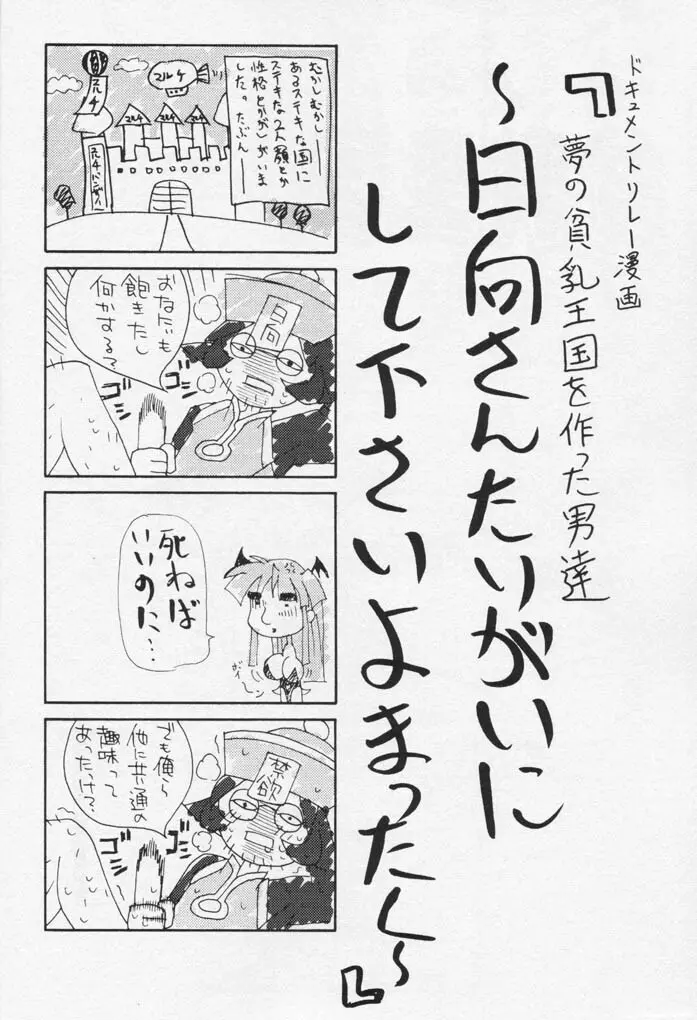 ドキュメントリレー漫画
『夢の貧乳王国を作った男達
～日向さんたいがいに
して下さいよまったく～』
むかしむかし
あるステキな国に
ステキな2人(顔とか
性格とかが)がいま
した。たぶん
マルチ
マルチ
マルチ
マルチ
マルチ
マルチバンザーイ
おなにいも
飽きたし
何かする?
日向
ゴシ
ゴシ
死ねば
いいのに…
がーん
でも俺ら
他に共通の
趣味って
あったっけ?
禁欲
ゴシ
ゴシ